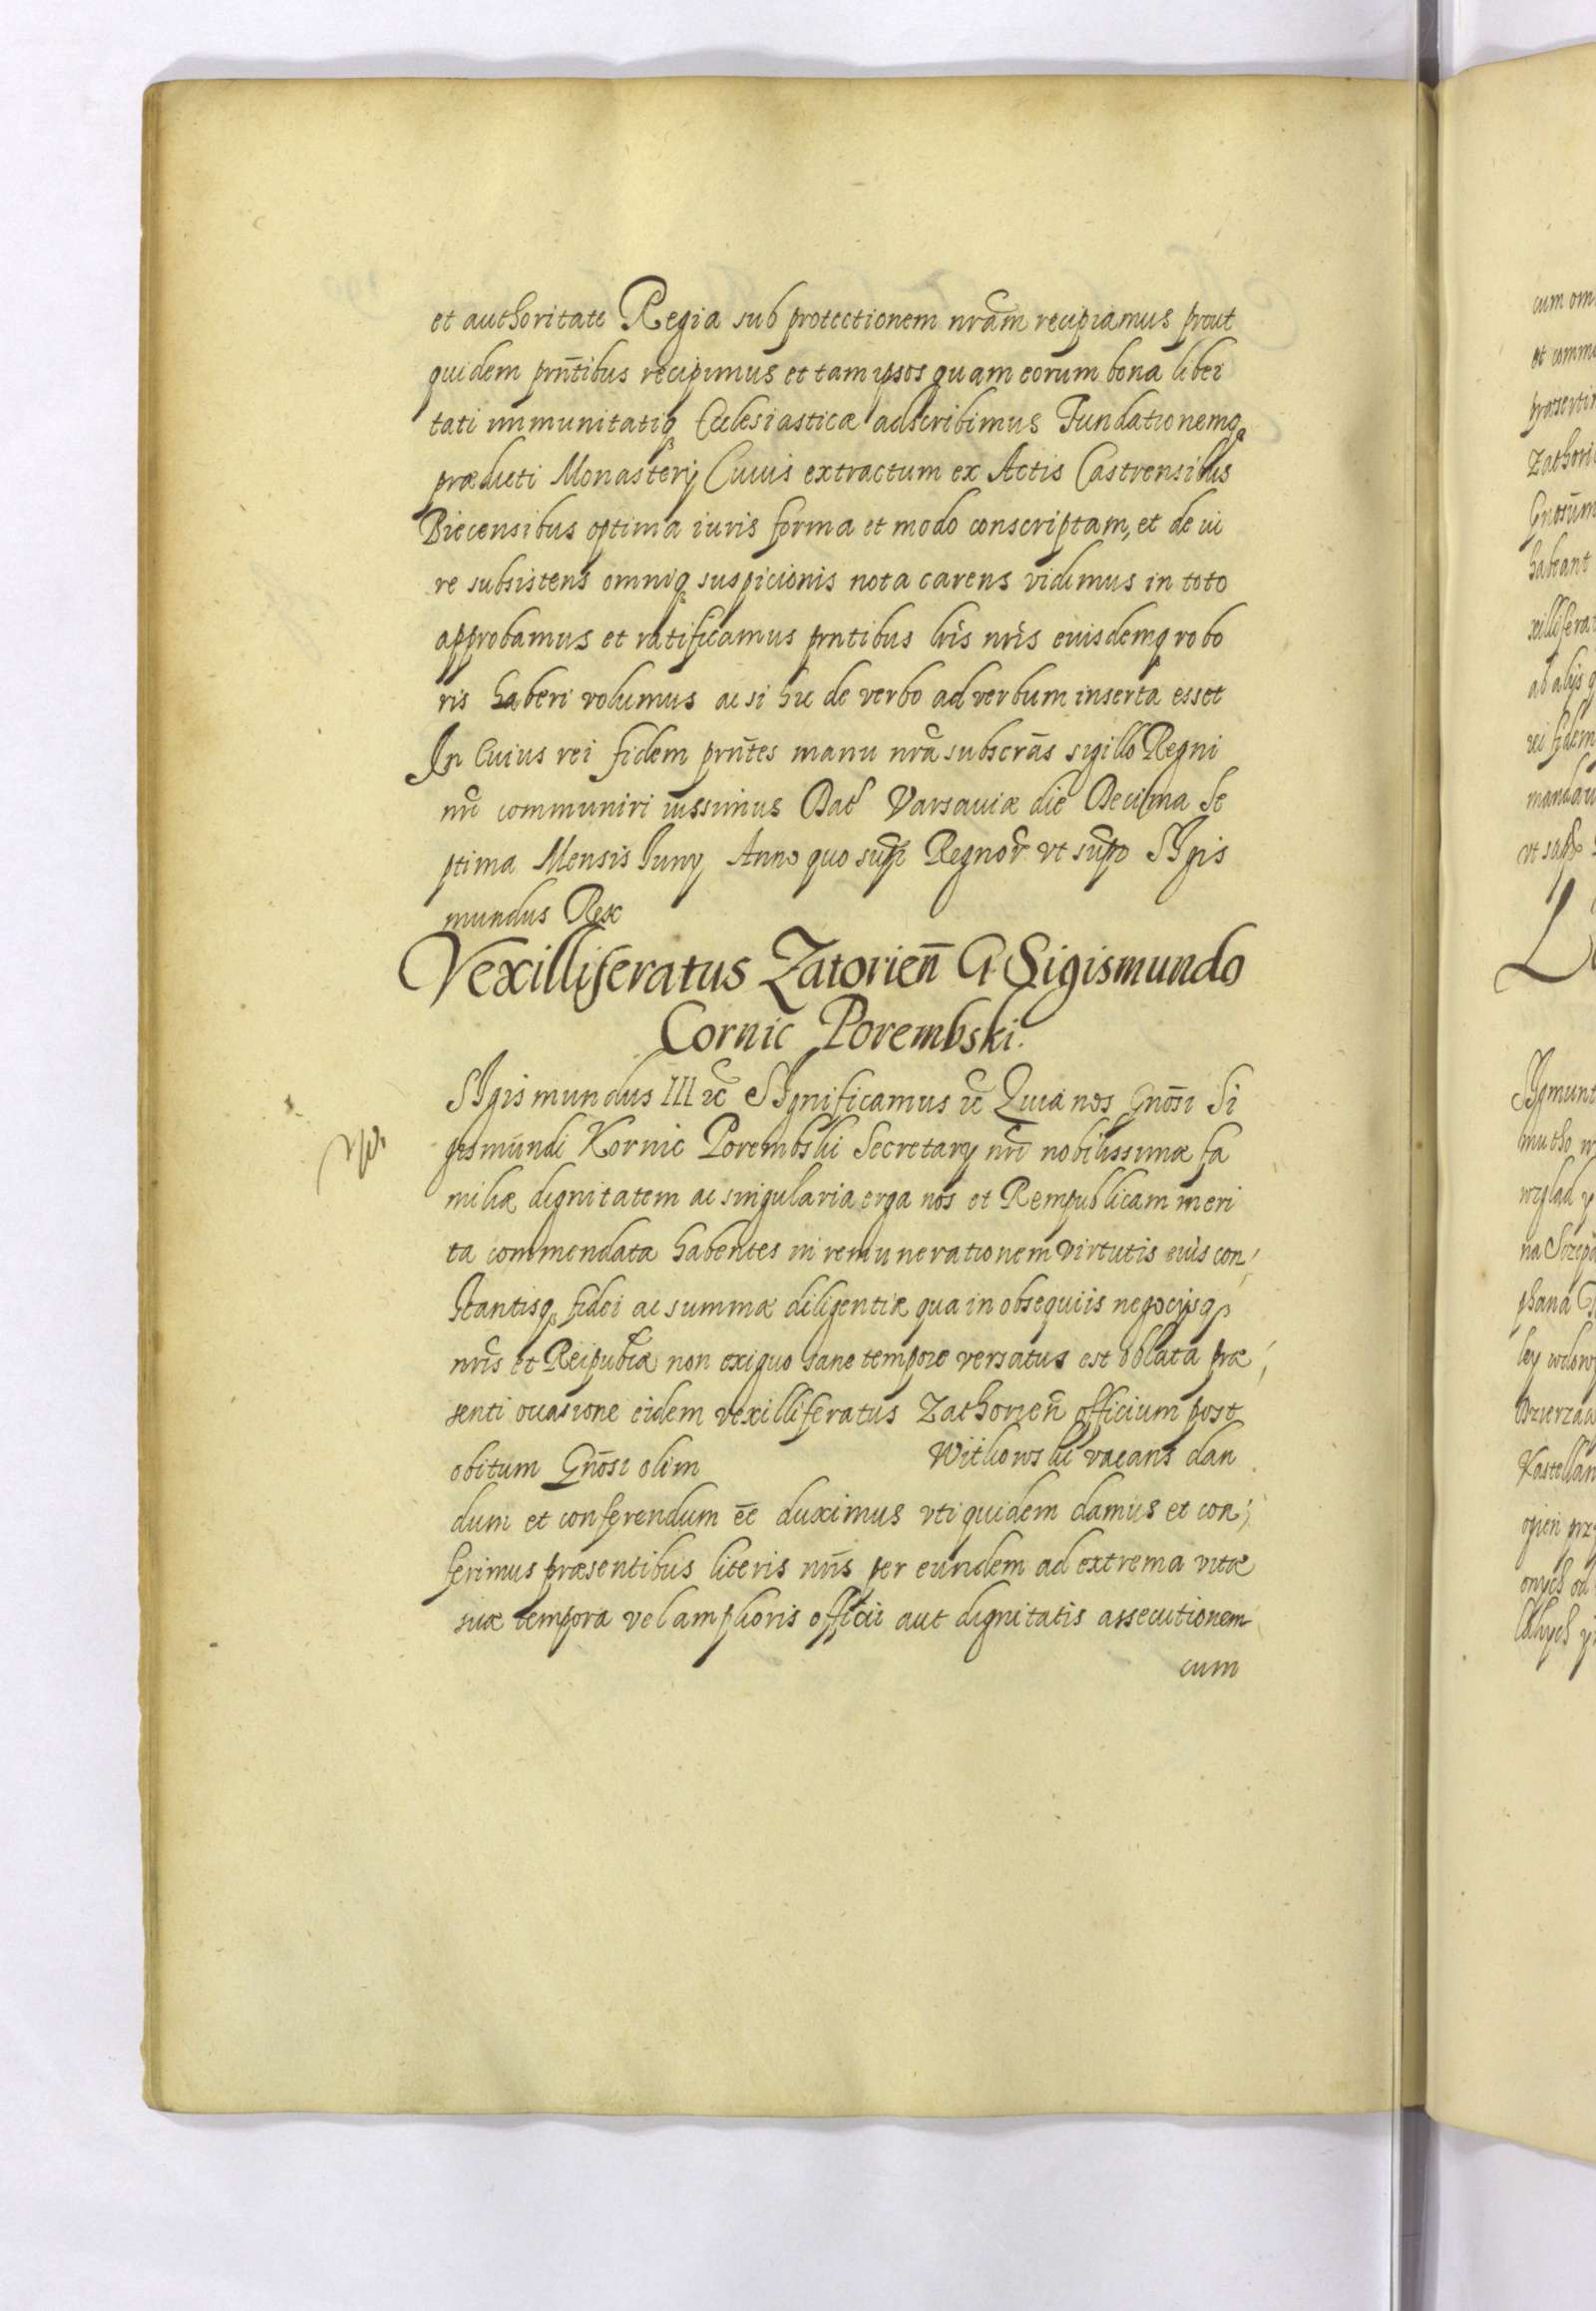 et authoritate Regia sub protectionem nr̃am recipiamus prout
quidem prñtibus recipimus et tam ipsos quam eorum bona liber
tati immunitatiq̃ Ecclesiasticæ adscribimus Fundationemq̃
prædicti Monasterÿ Cuius extractum ex Actis Castrensibus
Biecensibus optima iuris forma et modo conscriptam, et de iu
re subsistens omniq̃ suspicionis nota carens vidimus in toto
approbamus et ratificamus prntibus lr̃is nr̃is euisdemq̃ robo
ris haberi volumus ac si hic de verbo ad verbum inserta esset
In Cuius rei fidem prñtes manu nr̃a subscr̃as sigillo Regni
nr̃i communiri iussimus Dat̃ Varsauiæ die Decima Se
ptima Mensis Iuny Anno quo sup̃ Regnor̃ vt sup̃ SIgis
mundus Rex
Vexilliferatus Zatorień G Sigismundo
Cornic Porembski.
SIgismundus III ec̃ SIgnificamus ec̃ Quia nos Gnõsi Si
gismundi Kornic Porembski Secretarÿ nr̃i nobilissimæ fa
miliæ dignitatem ac singularia erga nos et Rempublicam meri
ta commendata habentes in remunerationem virtutis eius con
stantisq̃ fidei ac summæ diligentiæ qua in obsequiis negocÿsq̃
nr̃is et Reipub̃læ non exiguo sane tempore versatus est oblata præ
senti occasione eidem vexilliferatus Zathorień officium post
obitum Gnõsi olim Withowski vacans dan
dum et conferendum eẽ duximus vti quidem damus et con
ferimus præsentibus literis nr̃is per eundem ad extrema vitæ
suæ tempora vel amplioris officii aut dignitatis assecutionem
cum